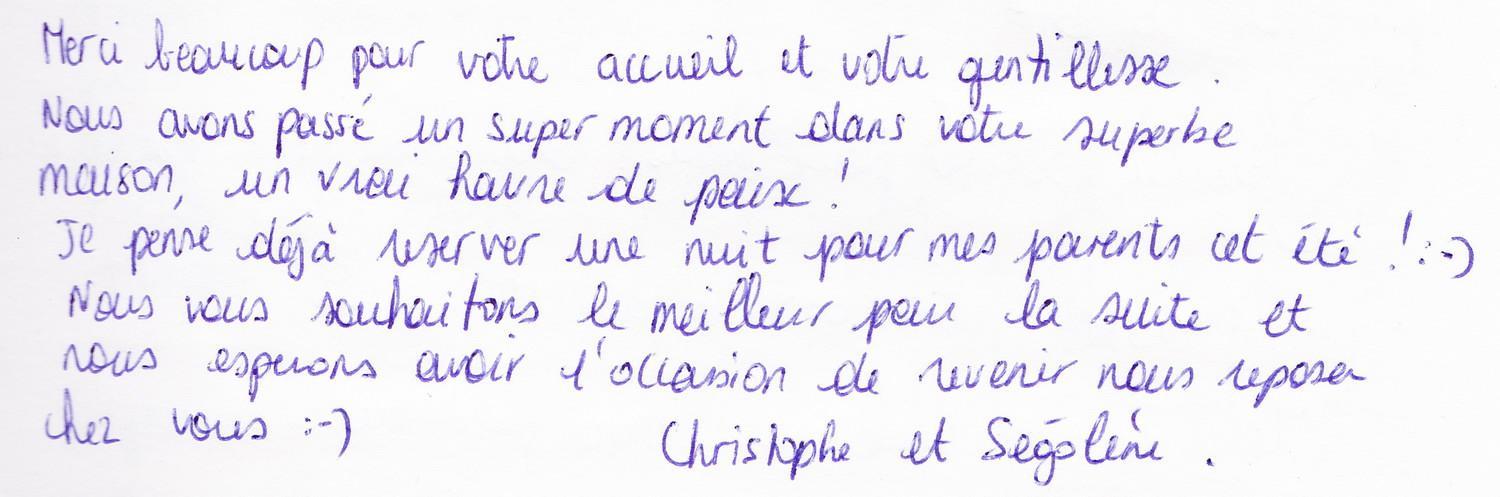 Merci beaucoup pour votre accueil et votre gentillesse.
Nous avons passé un super moment dans votre superbe
maison, un vrai havre de paix !
Je pense déjà reserver une nuit pour mes parents cet été ! :-)
Nous vous souhaitons le meilleur pour la suite et
nous esperons avoir l'occasion de revenir nous reposer
chez vous :-)
Christophe et Ségolène.